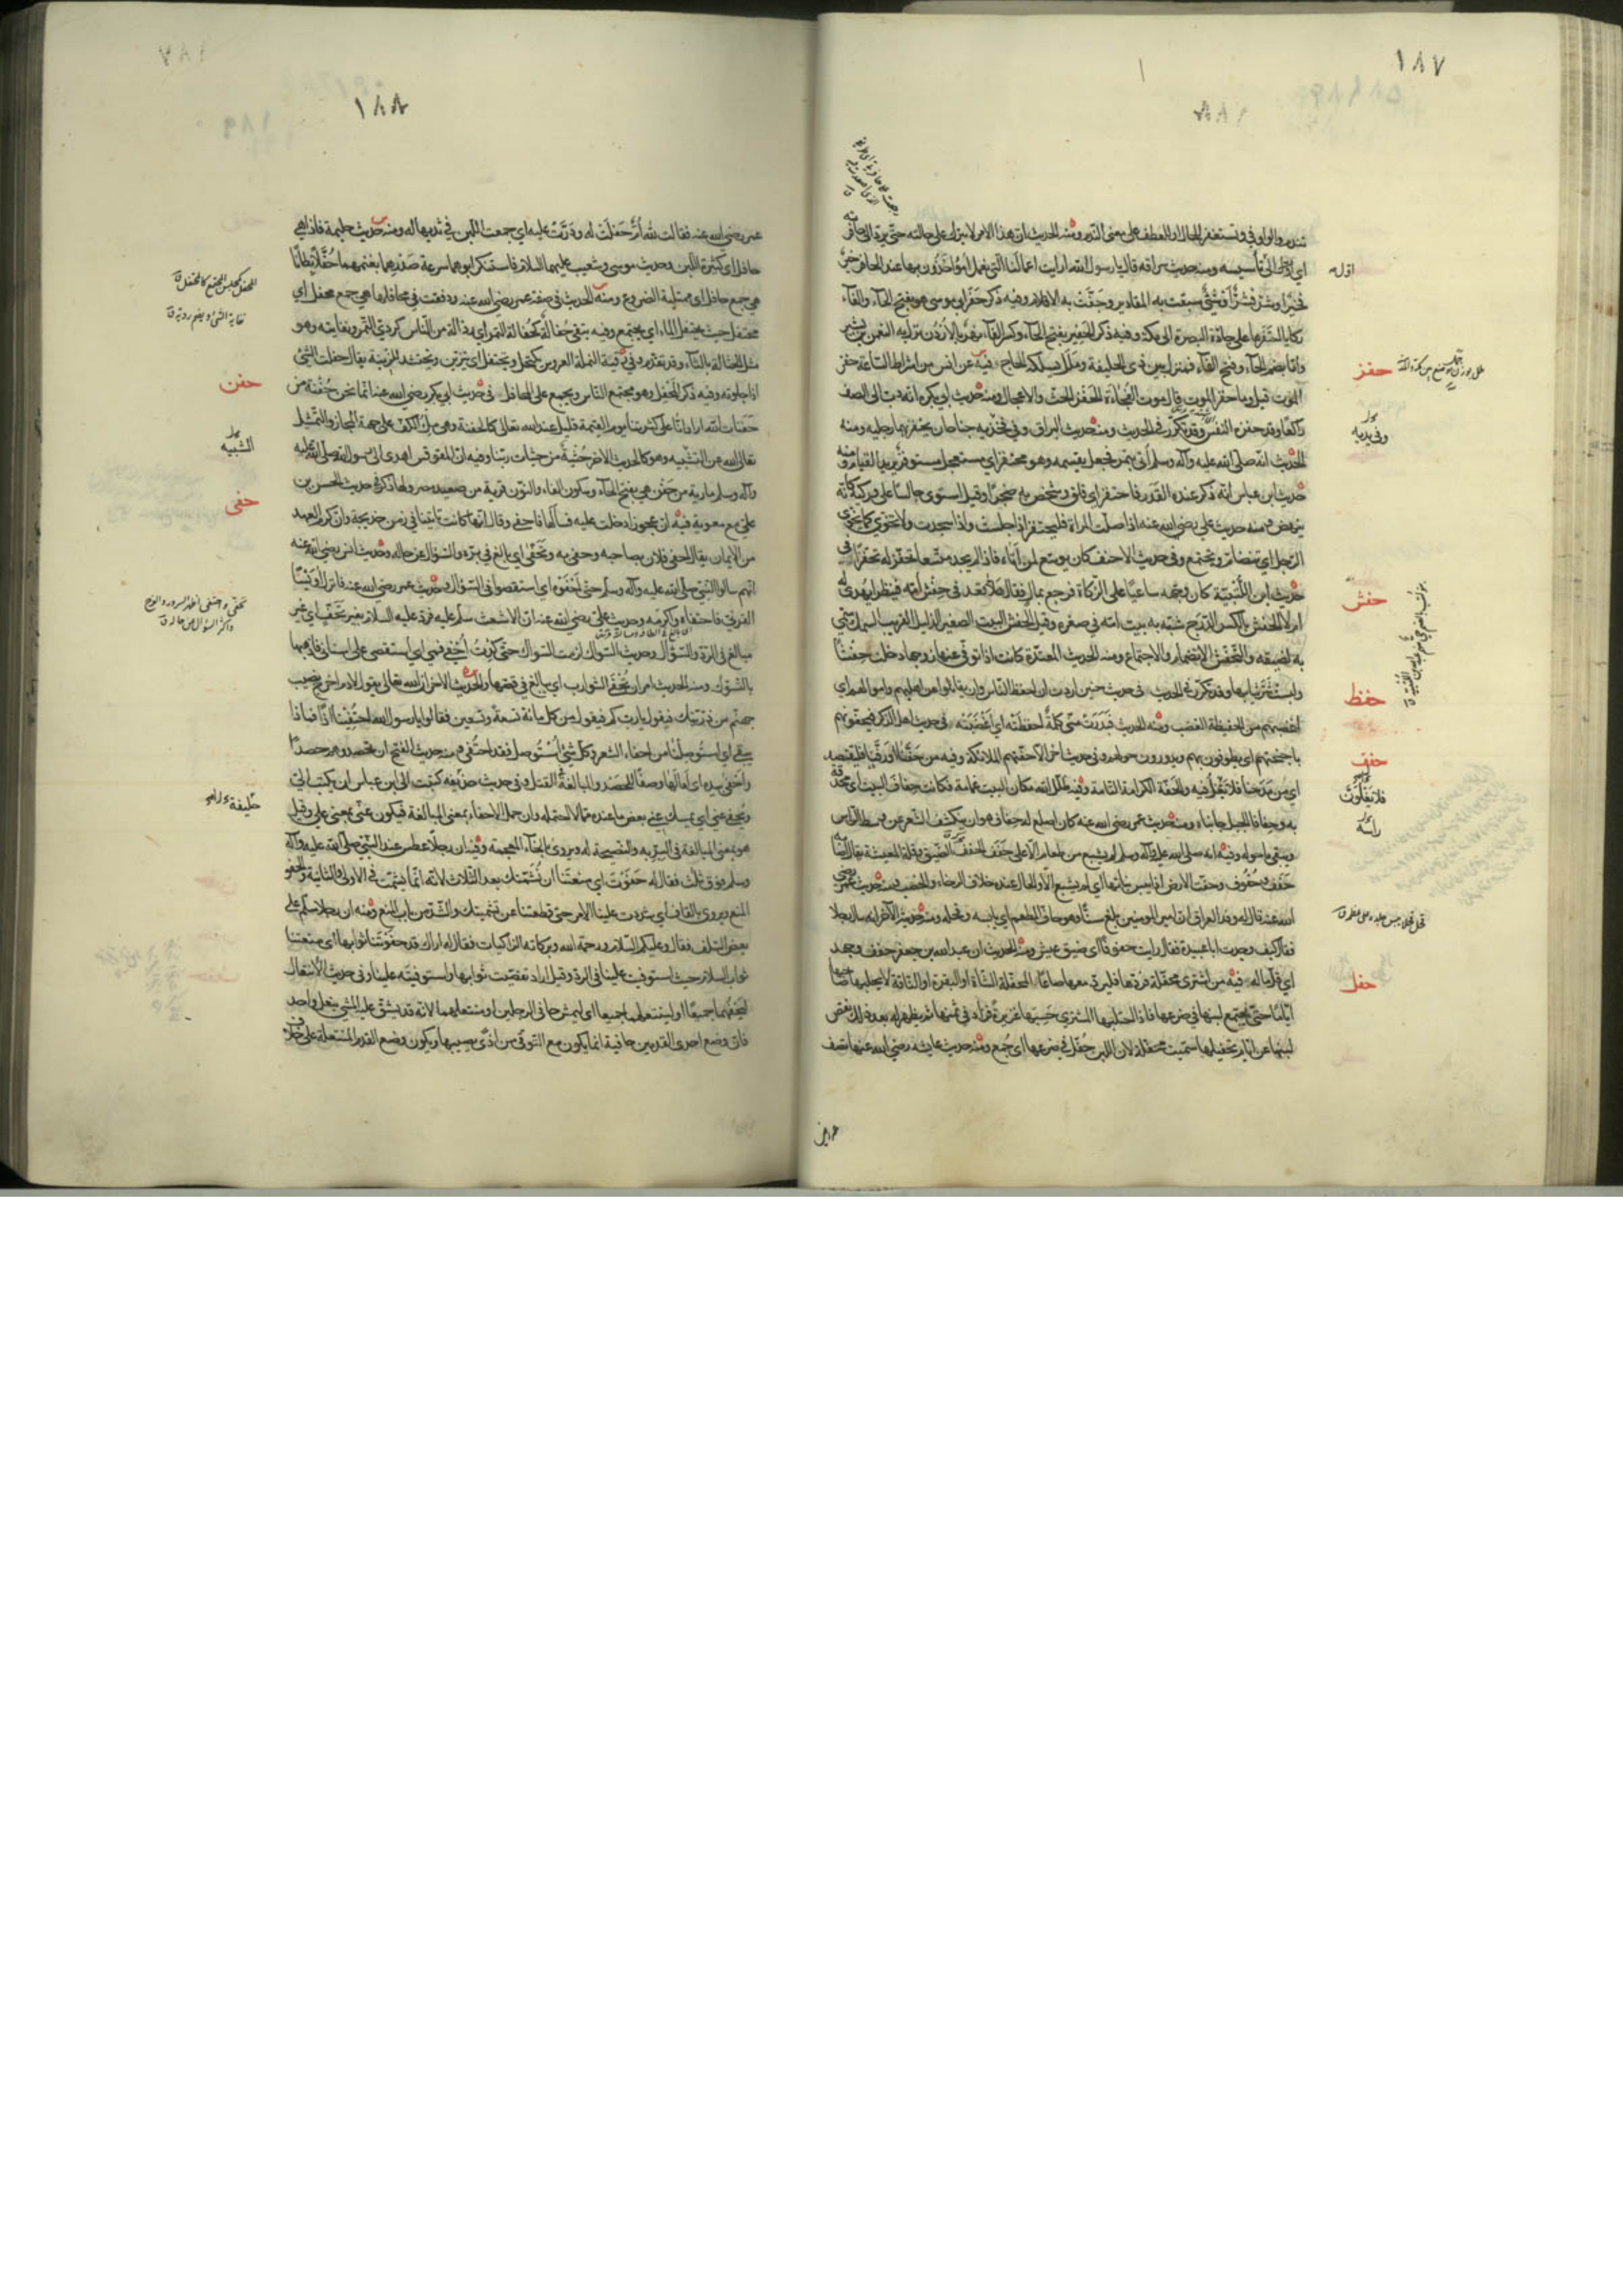 ١٨٧
تندم والواو في وتستغفر للحال او للعطف على معنى الندم ومنه الحديث ان هذا الامر لا يترك على حالته حتى يرد الى حافرته
اي الى تأسيسه ومنه حديث سراقة قال يا رسول الله ارايت اعمالنا التي نعمل امؤاخذون بها عند الحافر خير
فخير او شر فشر او شيء سبقت به المقادير وجفت به الاقلام وفيه ذكر حفر ابي موسى هو بفتح الحاء والفاء
ركايا احتفرها على جادة البصرة الى مكة وفيه ذكر الحفير بفتح الحاء وكسر الفاء نهر بالاردن نزل عنده النعمن بن بشير
واما بضم الحاء وفتح الفاء فمنزل بين ذي الحليفة وملل يسلكه الحاج فيه عن انس من اشراط الساعة حفز
الموت قيل وما حفز الموت قال موت الفجاءة الحفز الحث والاعجال ومنه حديث ابي بكرة انه دب الى الصف
راكعا وقد حفزه النفس وقد تكرر في الحديث ومنه حديث البراق وفي فخذيه جناحان يحفز بهما رجليه ومنه
الحديث انه صلى الله عليه وآله وسلم اتي بتمر فجعل يقسمه وهو محتفز اي مستعجل مستوفز يريد القيام ومنه
حديث ابن عباس انه ذكر عنده القدر فاحتفز اي قلق وشخص به ضجرا وقيل استوى جالسا على وركيه كانه
ينهض ومنه حديث علي رضي الله عنه اذا صلت المراة فلتحتفز اذا جلست واذا سجدت ولا تخوي كما يخوي
الرجل اي تتضام وتجتمع وفي حديث الاحنف كان يوسع لمن اتاه فاذا لم يجد متسعا تحفز له تحفزا في
حديث ابن اللتبية كان وجهه ساعيا على الزكاة فرجع بمال فقال هلا قعد في حفش امه فينظر ايهدى له
ام لا الحفش بالكسر الدرج شبه به بيت امه في صغره وقيل الحفش البيت الصغير الذليل القريب السمك سمي
به لضيقه والتحفش الانضمام والاجتماع ومنه الحديث المعتدة كانت اذا توفي عنها زوجها دخلت حفشا
ولبست شر ثيابها وقد تكرر في الحديث في حديث حنين اردت ان احفظ الناس وان يقاتلوا عن اهليهم واموالهم اي
اغضبهم من الحفيظة الغضب ومنه الحديث فبدرت مني كلمة احفظته اي اغضبته في حديث اهل الذكر فيحفونهم
باجنحتهم اي يطوفون بهم ويدورون حولهم وفي حديث آخر الا حفتهم الملائكة وفيه من حفنا او رفنا فليقتصد
اي من مدحنا فلا يغلون فيه والحفة الكرامة التامة وفيه ظلل الله مكان البيت غمامة فكانت حفاف البيت اي محدقة
به وحفافا الجبل جانباه ومنه حديث عمر رضي الله عنه كان اصلع له حفاف هو ان ينكشف الشعر عن وسط الراس
ويبقى ما حوله وفيه انه صلى الله عليه وآله وسلم لم يشبع من طعام الا على حفف الحفف الضيق وقلة المعيشة يقال اصابه
حفف وحفوف وحفت الارض اذا يبس نباتها اي لم يشبع الا والحال عنده خلاف الرخاء والخصب ومنه حديث عمر رضي
الله عنه قال له وفد العراق ان امير المومنين بلغ سنا وهو حاف المطعم اي يابسه وقحله ومنه حديثه الآخر انه سال رجلا
فقال كيف وجدت ابا عبيدة فقال رايت حفوفا اي ضيق عيش ومنه الحديث ان عبد الله بن جعفر حفف وجهد
اي قل ماله فيه من اشترى محفلة فردها فليرد معها صاعا المحفلة الشاة او البقرة او الناقة لا يحلبها صاحبها
اياما حتى يجتمع لبنها في ضرعها فاذا احتلبها المشتري حسبها غزيرة فزاد في ثمنها ثم يظهر له بعد ذلك نقص
لبنها عن ايام تحفيلها سميت محفلة لان اللبن حفل في ضرعها اي جمع ومنه حديث عايشة رضي الله عنها تصف
حفز
وفي يديه
حفش
حفظ
حفف
فلا يغلون
راسه
حفل
١٨٨
عمر رضي الله عنه فقالت لله ام حفلت له ودرت عليه اي جمعت اللبن في ثديها له ومنه حديث حليمة فاذا هي
حافل اي كثيرة اللبن وحديث موسى وشعيب عليهما السلام فاستنكر ابوهما سرعة صدرهما بغنمهما حفلا بطانا
هي جمع حافل اي ممتلية الضروع ومنه الحديث في صفة عمر رضي الله عنه ودفقت في محافلها هي جمع محفل اي
محتفل حيث يحتفل الماء اي يجتمع وفيه يبقى حفالة كحفالة التمر اي رذالة من الناس كردي التمر ونفايته وهو
مثل الحثالة بالثاء وقد تقدم وفي رقية النملة العروس تكتحل وتحتفل اي تتزين وتحتشد للزينة يقال حفلت الشي
اذا جلوته وفيه ذكر المحفل وهو مجتمع الناس ويجمع على المحافل في حديث ابي بكر رضي الله عنه انما نحن حفنة من
حفنات الله اراد انا على كثرتنا يوم القيمة قليل عند الله تعالى كالحفنة وهي ملء الكف على جهة المجاز والتمثيل
تعالى الله عن التشبيه وهو كالحديث الآخر حثية من حثيات ربنا وفيه ان المقوقس اهدى الى رسول الله صلى الله عليه
وآله وسلم مارية من حفن هي بفتح الحاء وسكون الفاء والنون قرية من صعيد مصر ولها ذكر في حديث الحسن بن
علي مع معوية فيه ان عجوزا دخلت عليه فسالها فاحفى وقال انها كانت تاتينا في زمن خديجة وان كرم العهد
من الايمان يقال احفى فلان بصاحبه وحفي به وتحفى اي بالغ في بره والسؤال عن حاله وحديث انس رضي الله عنه
انهم سالوا النبي صلى الله عليه وآله وسلم حتى احفوه اي استقصوا في السؤال وحديث عمر رضي الله عنه فانزل اويسا
القرني فاحتفاه واكرمه وحديث علي رضي الله عنه ان الاشعث سلم عليه فرد عليه السلام بغير تحف اي غير
مبالغ في الرد والسؤال وحديث السواك لزمت السواك حتى كدت احفي فمي اي استقصي على اسناني فاذهبها
بالتسوك ومنه الحديث امر ان تحفى الشوارب اي يبالغ في قصها والحديث الآخر ان الله تعالى يقول لادم اخرج نصيب
جهنم من ذريتك فيقول يا رب كم فيقول من كل مائة تسعة وتسعين فقالوا يا رسول الله احتفينا اذا فماذا
يبقى اي استوصلنا من احفاء الشعر وكل شيء استوصل فقد احتفي ومنه حديث الفتح ان تحصدوهم حصدا
واحفى بيده اي امالها وصفا للحصد والمبالغة في القتل وفي حديث خليفة كتبت الى ابن عباس ان يكتب الي
ويحفي عني اي يمسك عني بعض ما عنده مما لا احتمله وان حمل الاحفاء بمعنى المبالغة فيكون عني بمعنى علي وقيل
هو بمعنى المبالغة في البر به والنصيحة له ويروى بالخاء المعجمة وفيه ان رجلا عطس عند النبي صلى الله عليه وآله
وسلم فوق ثلث فقال له حفوت اي منعتنا ان نشمتك بعد الثلاث لانه انما يشمت في الاولى والثانية والحفو
المنع ويروى بالقاف اي شددت علينا الامر حتى قطعتنا عن تشميتك والشد من باب المنع ومنه ان رجلا سلم على
بعض السلف فقال وعليكم السلام ورحمة الله وبركاته الزاكيات فقال له اراك قد حفوتنا ثوابها اي منعتنا
ثواب السلام حيث استوفيت علينا في الرد وقيل اراد تقصيت ثوابها واستوفيته علينا وفي حديث الانتعال
ليحفهما جميعا او لينعلهما جميعا اي ليمش حافي الرجلين او منتعلهما لانه قد يشق عليه المشي بنعل واحد
فان وضع احدى القدمين حافية انما يكون مع التوقي من اذى يصيبها ويكون وضع القدم المنتعلة على خلاف
حفن
التشبيه
حفى
خليفة